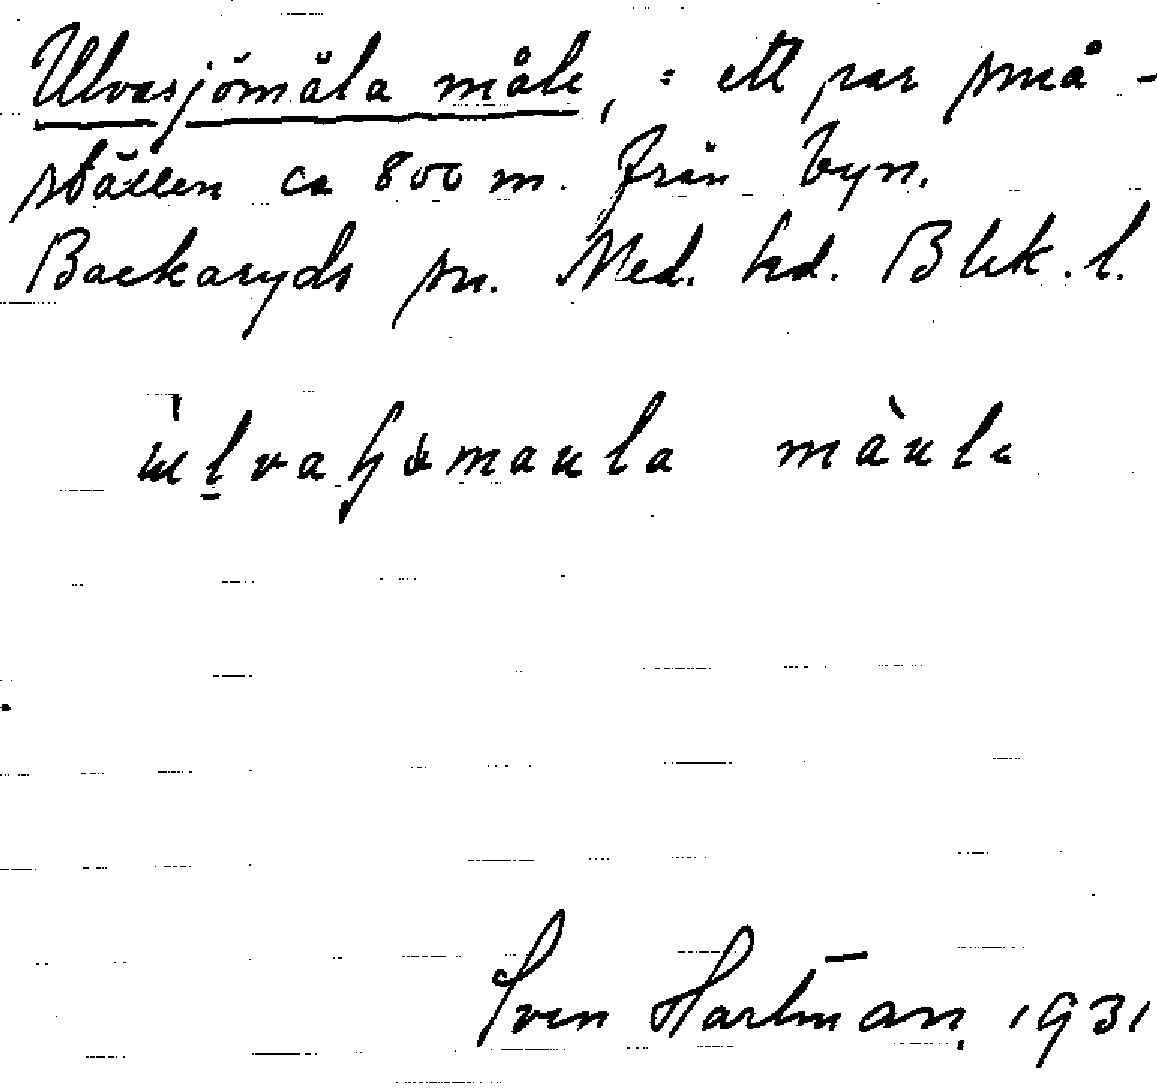 Ulvasjömåla måle, = ett par små-
ställen ca 800 m. från byn.
Backaryds sn. Med. hd. Blek. l.
måula
Sven Hartman. 1931